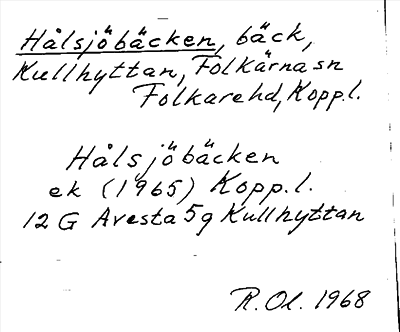 Hålsjöbäcken, bäck,
Kullhyttan, Folkärna sn
Folkare hd, Kopp.l.
Hålsjöbäcken
ek (1965) Kopp.l.
12 G Avesta 5g Kullhyttan
R.Ol. 1968